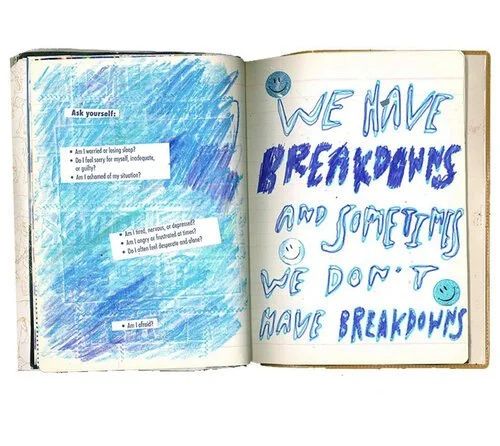 Ask yourself:
• Am I worried or losing sleep?
• Do I feel sorry for myself, inadequate,
or guilty?
• Am I ashamed of my situation?
• Am I tired, nervous, or depressed?
• Am I angry or frustrated at times?
• Do I often feel desperate and alone?
• Am I afraid?
WE HAVE
BREAKDOWNS
AND SOMETIMES
WE DON'T
HAVE BREAKDOWNS